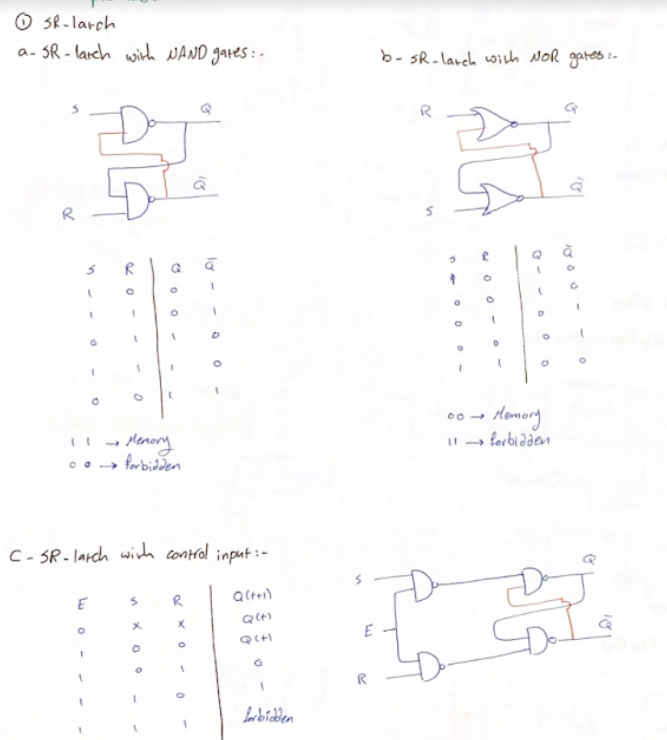 ① SR-latch
a- SR-latch with NAND gates:-
S Q
Q̄
R
S R Q Q̄
1 0 0 1
1 1 0 1
0 1 1 0
1 1 1 0
0 0 1 1
1 1 → Memory
0 0 → forbidden
b- SR-latch with NOR gates:-
R Q
Q̄
S
S R Q Q̄
1 0 1 0
0 0 1 0
0 1 0 1
0 0 0 1
1 1 0 0
00 → Memory
11 → forbidden
C- SR-latch with control input:-
E S R Q(t+1)
0 x x Q(t)
1 0 0 Q(t)
1 0 1 0
1 1 0 1
1 1 1 forbidden
S Q
E Q̄
R